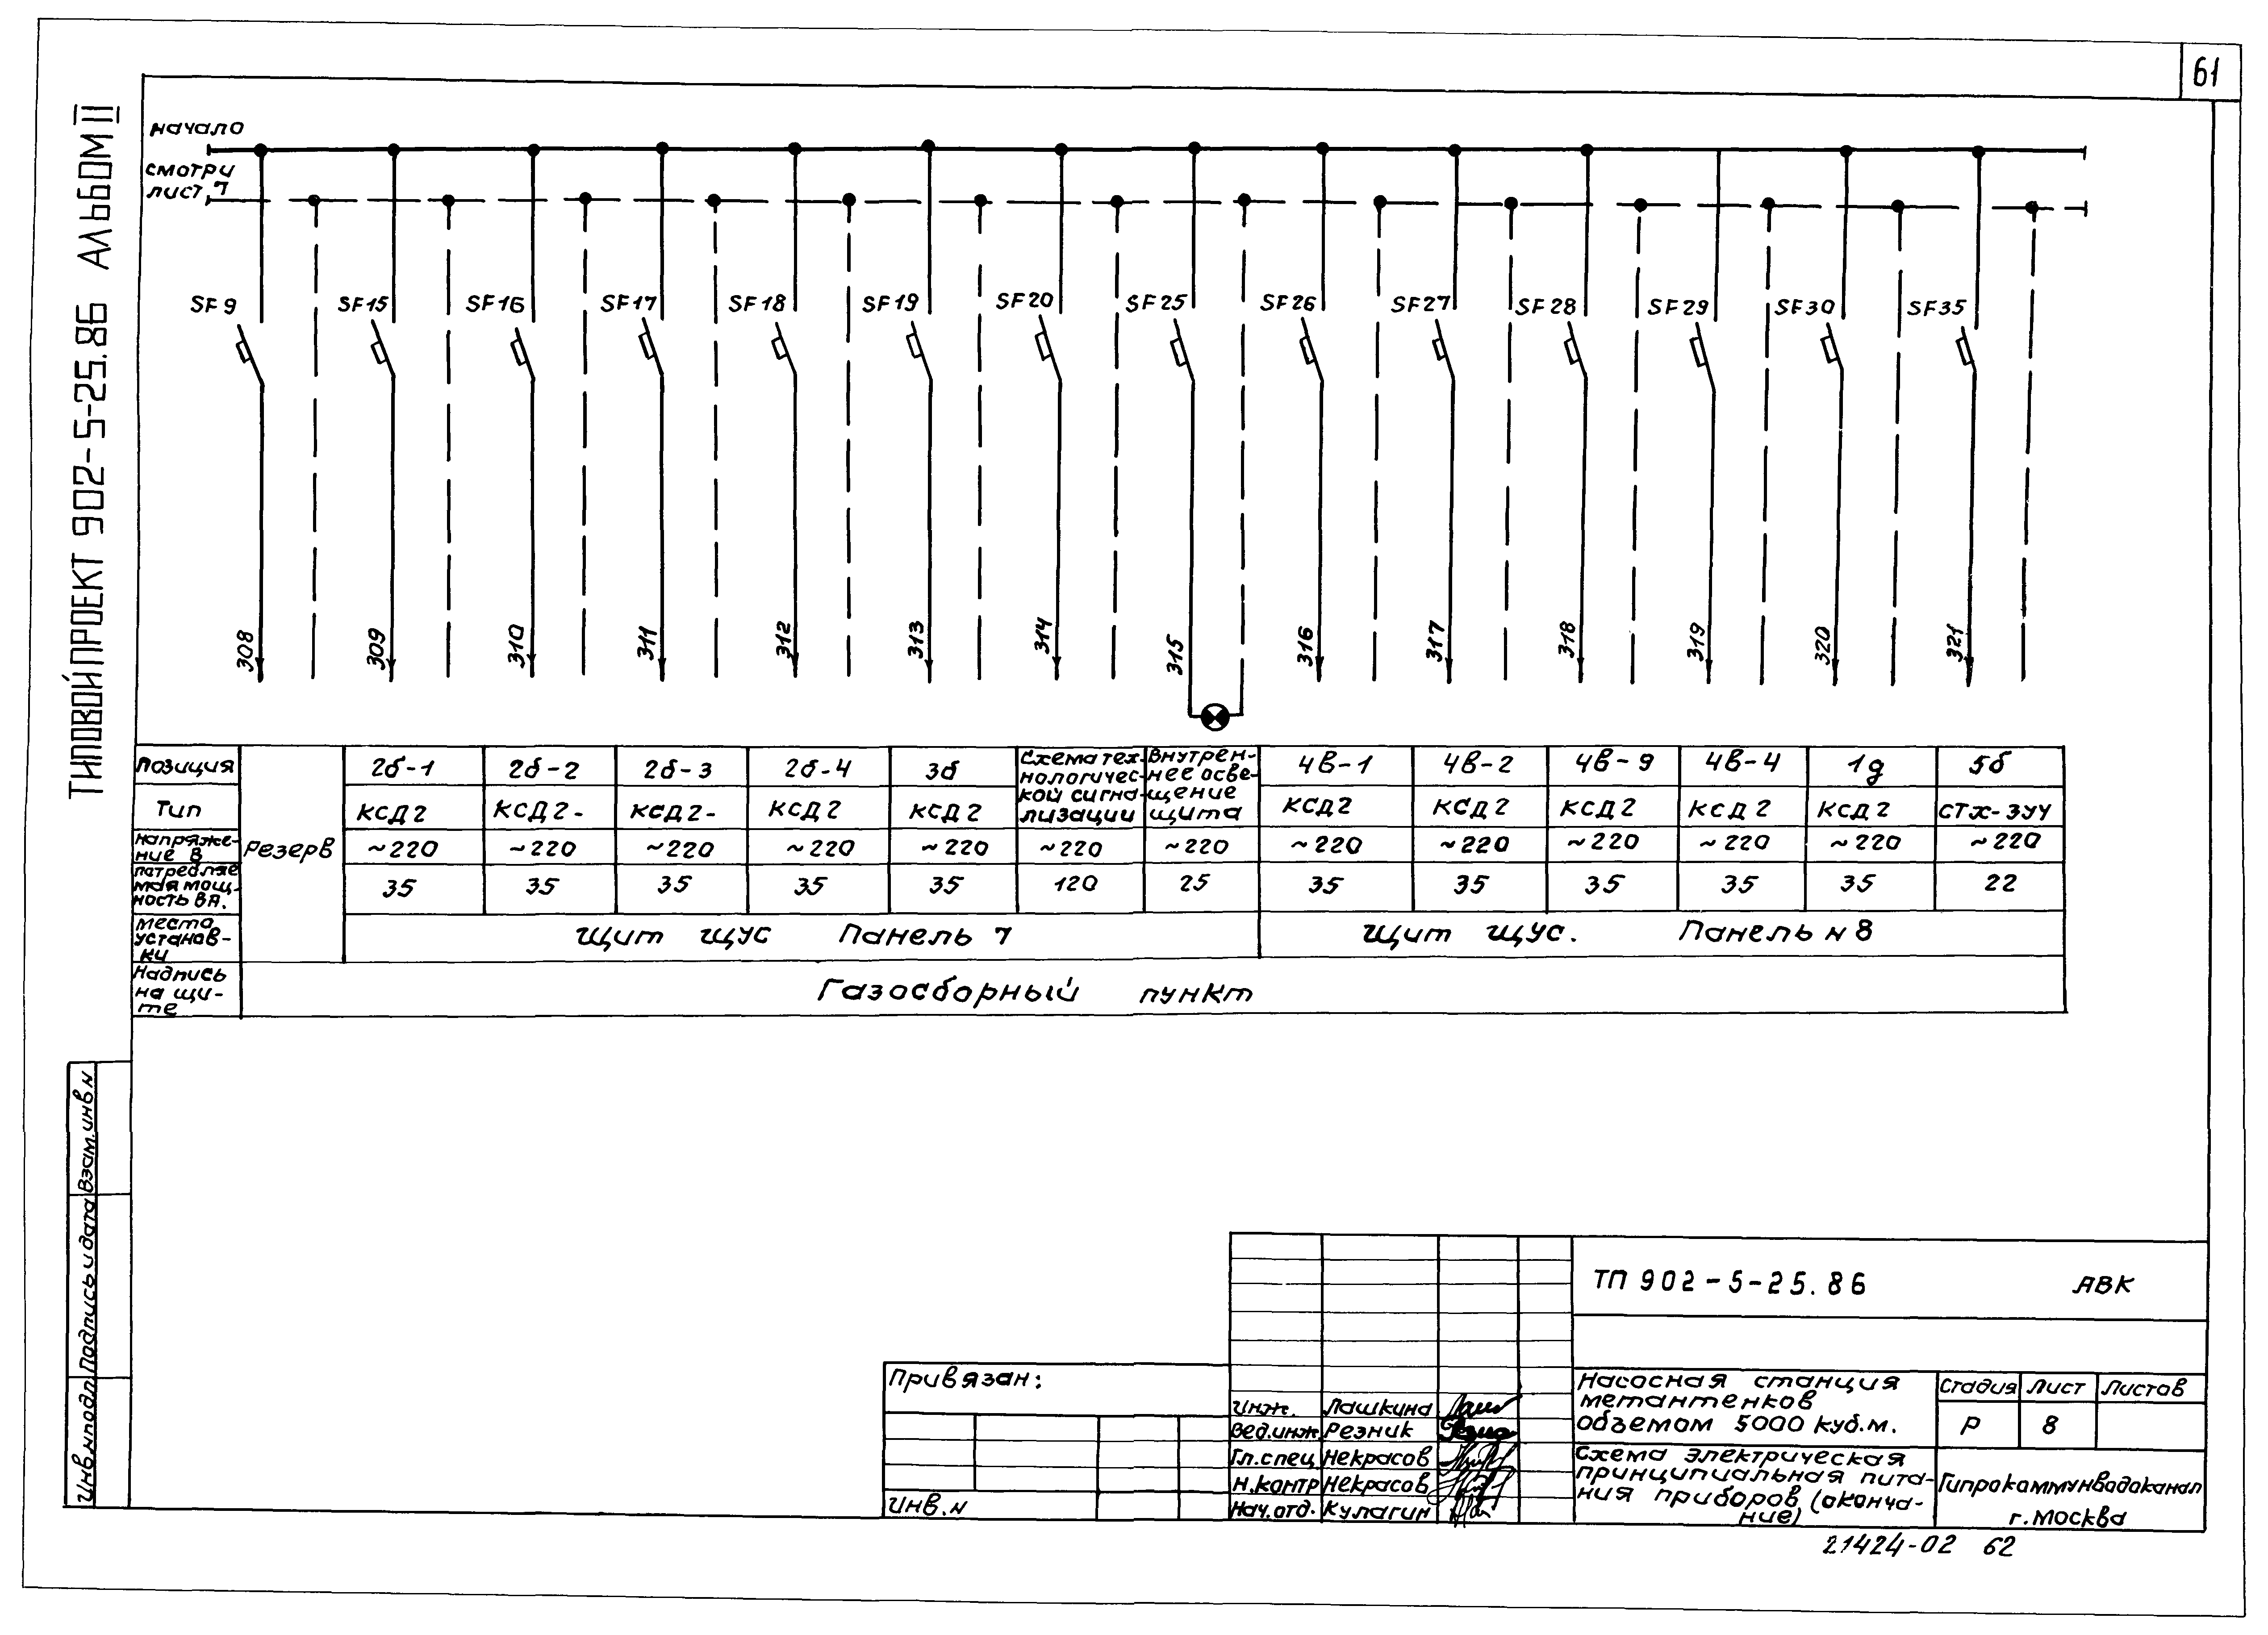 61
ТИПОВОЙ ПРОЕКТ 902-5-25.86 АЛЬБОМ II
начало
смотри
лист 7
SF9 SF15 SF16 SF17 SF18 SF19 SF20 SF25 SF26 SF27 SF28 SF29 SF30 SF35
308 309 310 311 312 313 314 315 316 317 318 319 320 321
Позиция 2б-1 2б-2 2б-3 2б-4 3б Схема тех- Внутрен- 4в-1 4в-2 4в-9 4в-4 1д 5б
нологичес- нее осве-
кой сигна- щение
лизации щита
Тип КСД2 КСД2- КСД2- КСД2 КСД2 КСД2 КСД2 КСД2 КСД2 КСД2 СТХ-3УЧ
Напряже-
ние В Резерв ~220 ~220 ~220 ~220 ~220 ~220 ~220 ~220 ~220 ~220 ~220 ~220 ~220
потребляе
мая мощ- 35 35 35 35 35 120 25 35 35 35 35 35 22
ность ВА.
место
установ- Щит ЩУС Панель 7 Щит ЩУС. Панель н 8
ки
Надпись
на щи- Газосборный пункт
те
Взам.инв.н
Подпись и дата
Инв.н подл
ТП 902-5-25.86 АВК
Привязан:
Инв.н
Инж. Лашкина
Вед.инж. Резник
Гл.спец Некрасов
Н.контр Некрасов
Нач.отд. Кулагин
Насосная станция
метантенков
объемом 5000 куб.м.
Стадия Лист Листов
Р 8
Схема электрическая
принципиальная пита-
ния приборов (оконча-
ние)
Гипрокоммунводоканал
г.Москва
21424-02 62